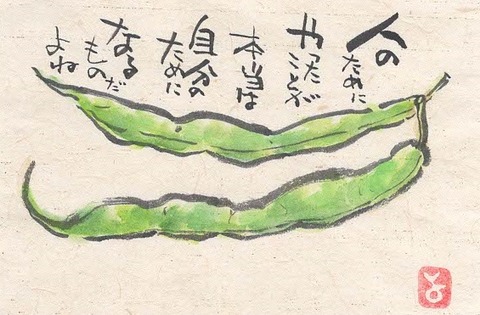 人の
ために
やった
ことが
本当は
自分の
ために
なる
ものだ
よね